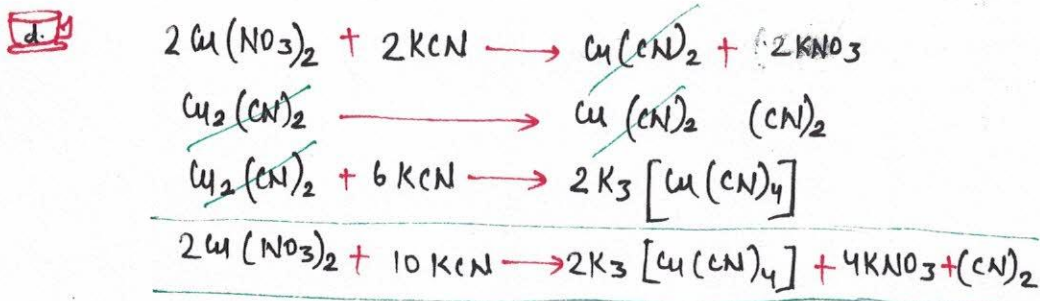 d. 2Cu(NO3)2 + 2KCN → Cu(CN)2 + 2KNO3
Cu2(CN)2 → Cu(CN)2 (CN)2
Cu2(CN)2 + 6KCN → 2K3[Cu(CN)4]
2Cu(NO3)2 + 10KCN → 2K3[Cu(CN)4] + 4KNO3 + (CN)2